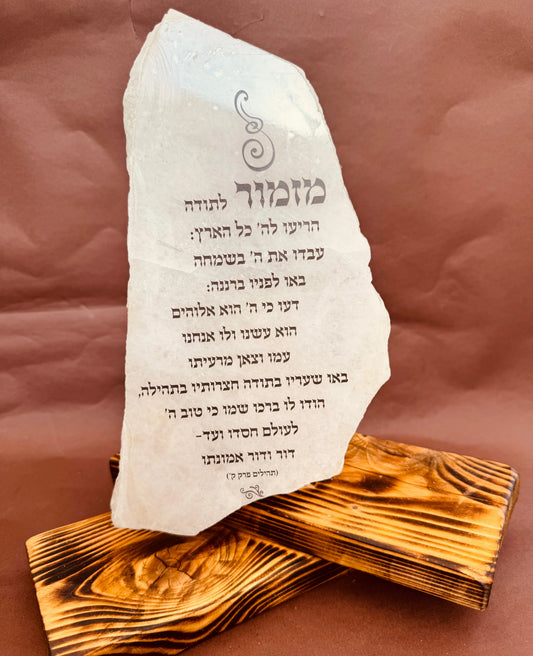 מזמור לתודה
הריעו לה' כל הארץ:
עבדו את ה' בשמחה
באו לפניו ברננה:
דעו כי ה' הוא אלוהים
הוא עשנו ולו אנחנו
עמו וצאן מרעיתו
באו שעריו בתודה חצרותיו בתהילה,
הודו לו ברכו שמו כי טוב ה'
לעולם חסדו ועד-
דור ודור אמונתו
(תהילים פרק ק')